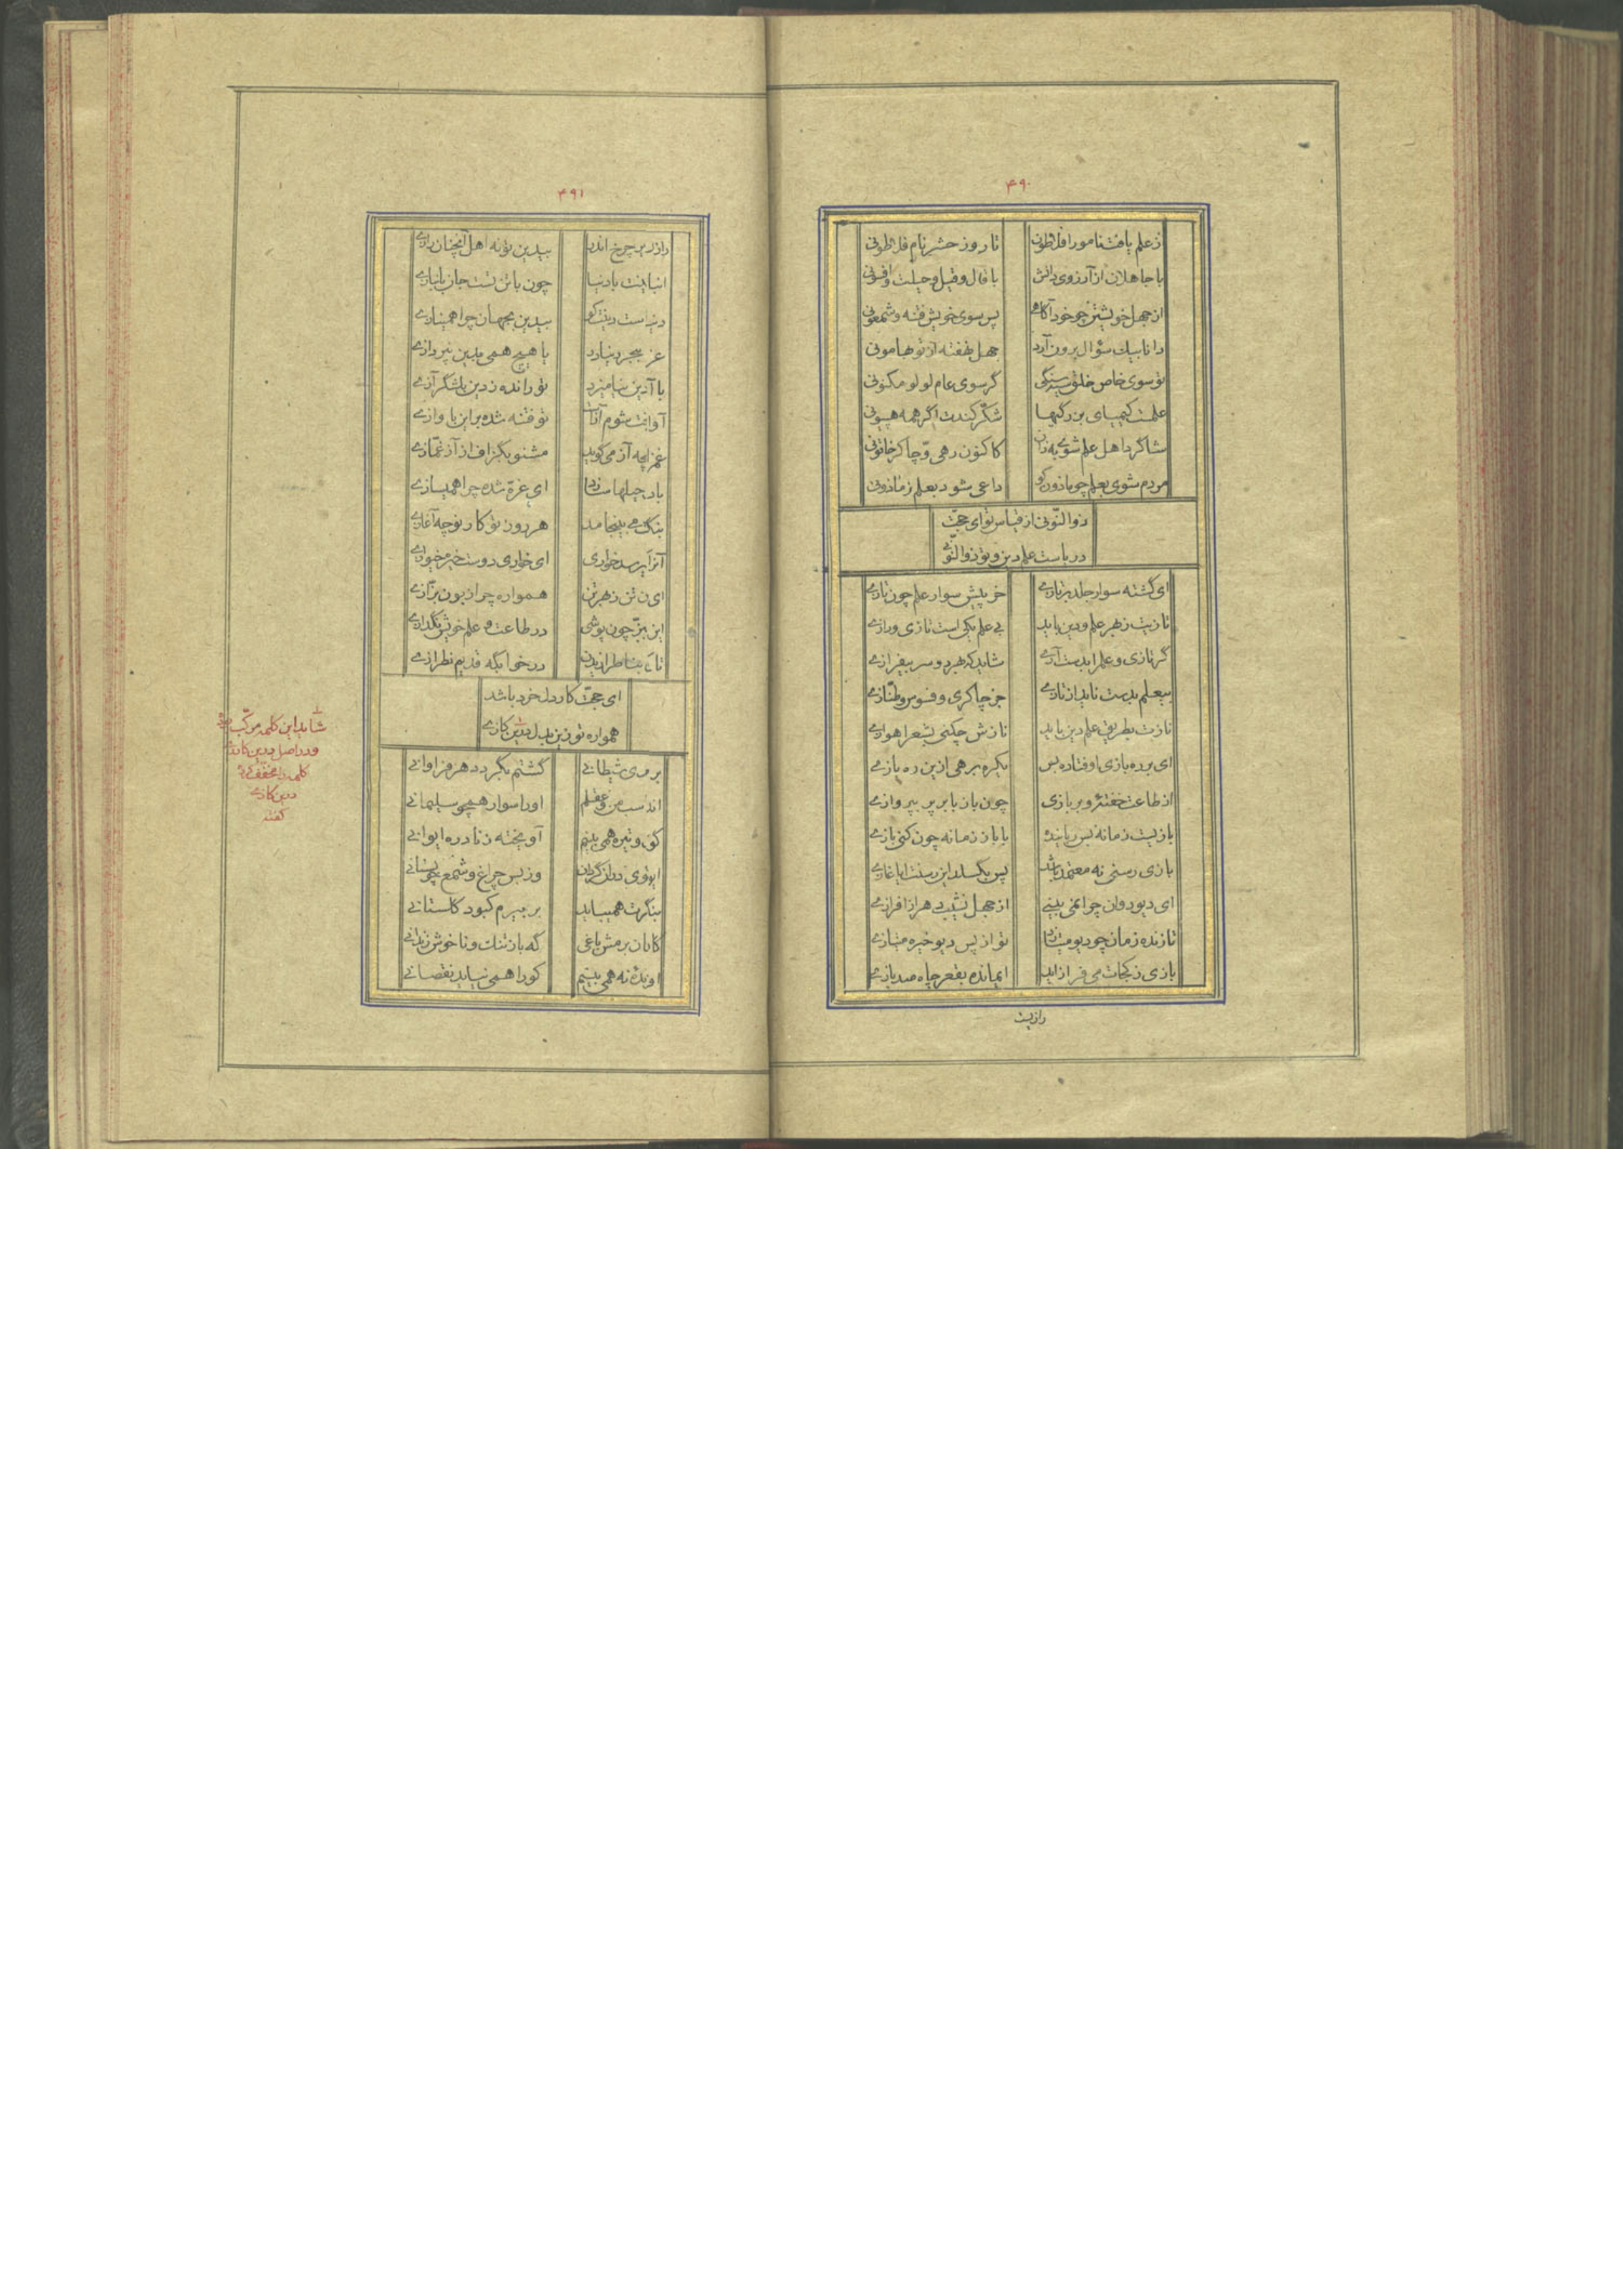 ۴۹۰
از علم یافت نامور افلاطون تا روز حشر نام فلاطونی
با جاهلان از آرزوی دانش با قال و قیل و حیلت و افسونی
از جهل خویشتن چو خود آگاهی پس سوی خویش فتنه و شمعونی
دانا بیک سؤال برون آرد جهل نهفته از تو بهامونی
تو سوی خاص خلق سیه سنگی گر سوی عام لولو مکنونی
علمت کیمیای بزرگیها شکّر کندت اگر همه هپیونی
شاگرد اهل علم شوی به زان کاکنون رهی و چاکر خاتونی
مردم شوی بعلم چو ماذون کو داعی شود بعلم ز ماذونی
ذوالنّونی از قیاس تو ای حجّت
دریاست علم دین و تو ذوالنّونی
ای گشته سوار جلد بر تازی خر پیش سوار علم چون تازی
تازیت ز بهر علم و دین باید بی علم یکی است تازی و رازی
گر تازی و علم را بدست آری شاید که بهر دو سر بیفرازی
بیعلم بدست ناید از تازی جز چاکری و فسوس و طنّازی
نازت بطریق علم دین باید نازش چکنی بشعر اهوازی
ای برده بازی اوفتاده بس یکره برهی ازین ره بازی
از طاعت خفتهٔ و بر بازی چون باز بابر بر بپروازی
بازیست زمانه بس رباینده با باز زمانه چون کنی بازی
بازی رسنی نه معتمد باشد پس بگسلد این رسنت ایا غازی
ای دیو دوان چرا نمی بینی از جهل نشیبی هر از افرازی
تازنده زمان چو دیو میتازد تو از پس دیو خیره میتازی
بازی ز کجات می فراز آید ای مانده بقعر چاه صد بازی
رازیست
۴۹۱
رازیست درین چرخ اندر بیدین تو نه اهل آنچنان رازی
انبازیت با دنیا چون با تن تست جان بانبازی
دنیاست دینت کو بیدین بجهان چرا همینازی
با هیچ همی بدین نپردازی
با آز دین نیامیزد تو رانده ز دین بلشگر آزی
آوازت شوم آزت تو فتنه شده بر این بد آوازی
غمز آنچه آز می گوید مشنو بگزاف از آز غمّازی
ای غرّه شده چرا همیسازی
هر روز تو کار نو چه آغازی
آنرا برسد خواری ای خواری دوست خیره
ای تن ز بهر تن همواره چرا زبون بزّازی
این بزّ چون پوشی در طاعت و علم خویش نگدازی
در خوابگه قدیم نظرازی
ای حجّت کار دل خرد باشد
همواره تو زین بدل بدین کازی
شاید این کلمه مرکّب بوده
و در اصل بدین کازی
کلمه را مخفف
دین کازی
گفته
گشتم بگرد دهر فراوانی
او را سوار همچو سلیمانی
کوی و تیره همی بینم آویخته ز نادره ایوانی
وز بس چراغ و شمع چو بستانی
بنگرت همیباید بر بیرم کبود گلستانی
کابان برمش باغی که باز تنک و ناخوش زندانی
او بنده نه همی بینم کو را همی نیاید نقصانی